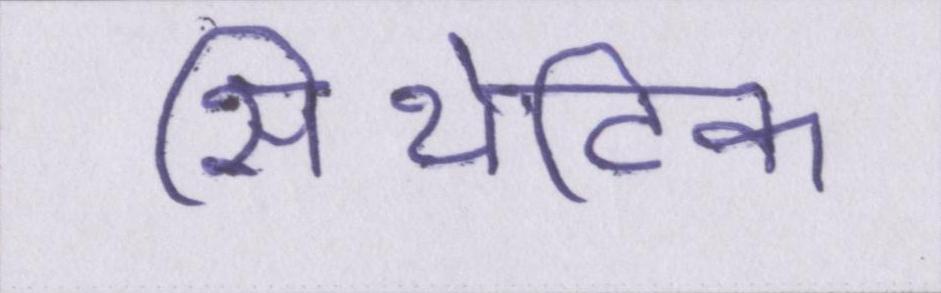 सिंथेटिक